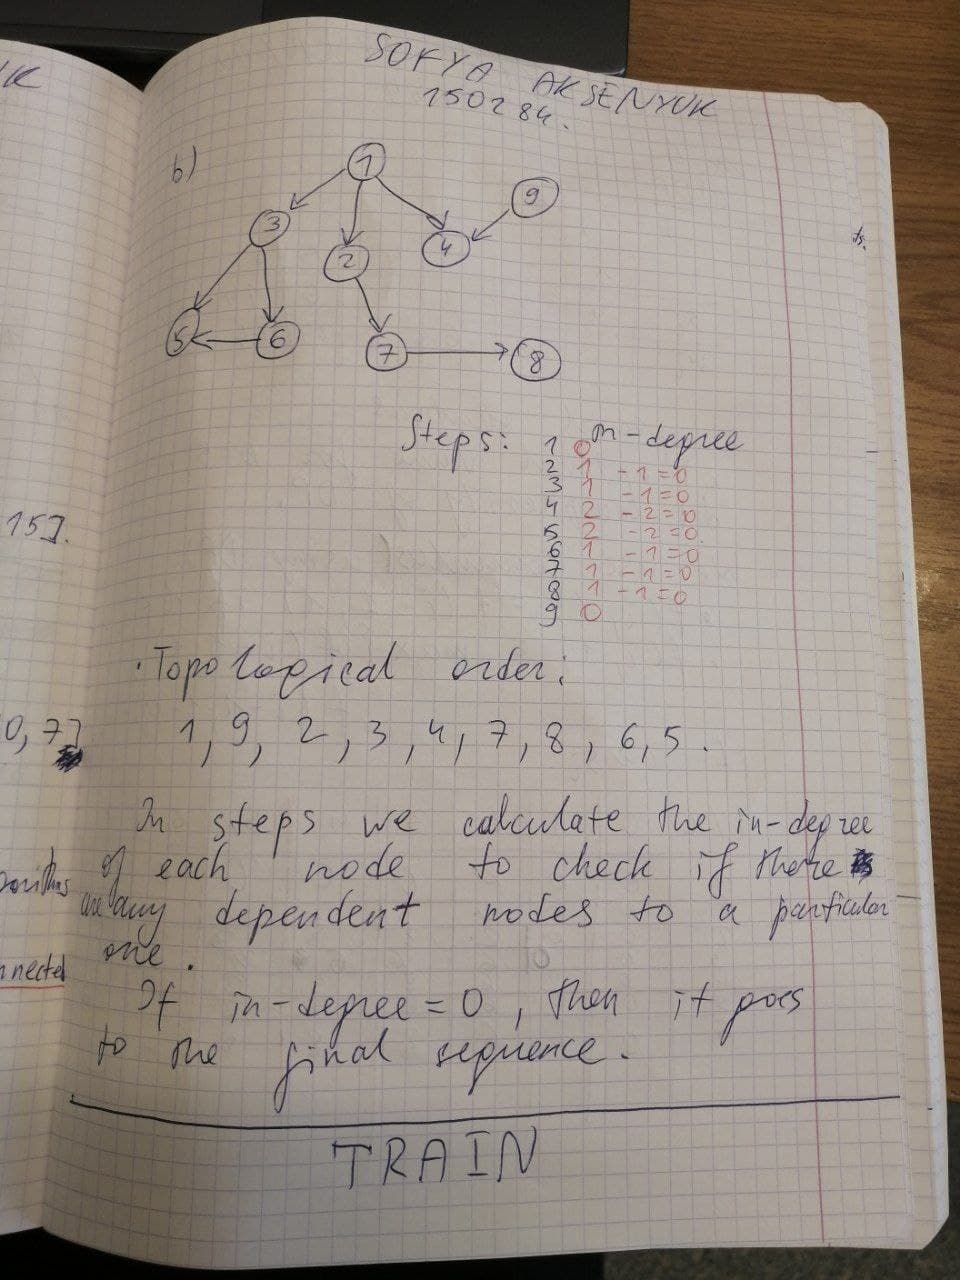 SOFYA AKSENYUK
150284.
b)
1
9
3
2
4
5
6
7
8
Steps: in-degree
1 0
2 1 -1=0
3 1 -1=0
4 2 -2=0
5 2 -2=0.
6 1 -1=0
7 1 -1=0
8 1 -1=0
9 0
15].
· Topological order:
0, 7]
1, 9, 2, 3, 4, 7, 8, 6, 5.
In steps we calculate the in-degree
of each node to check if there
are any dependent nodes to a particular
one.
If in-degree = 0, then it goes
to the final sequence.
TRAIN